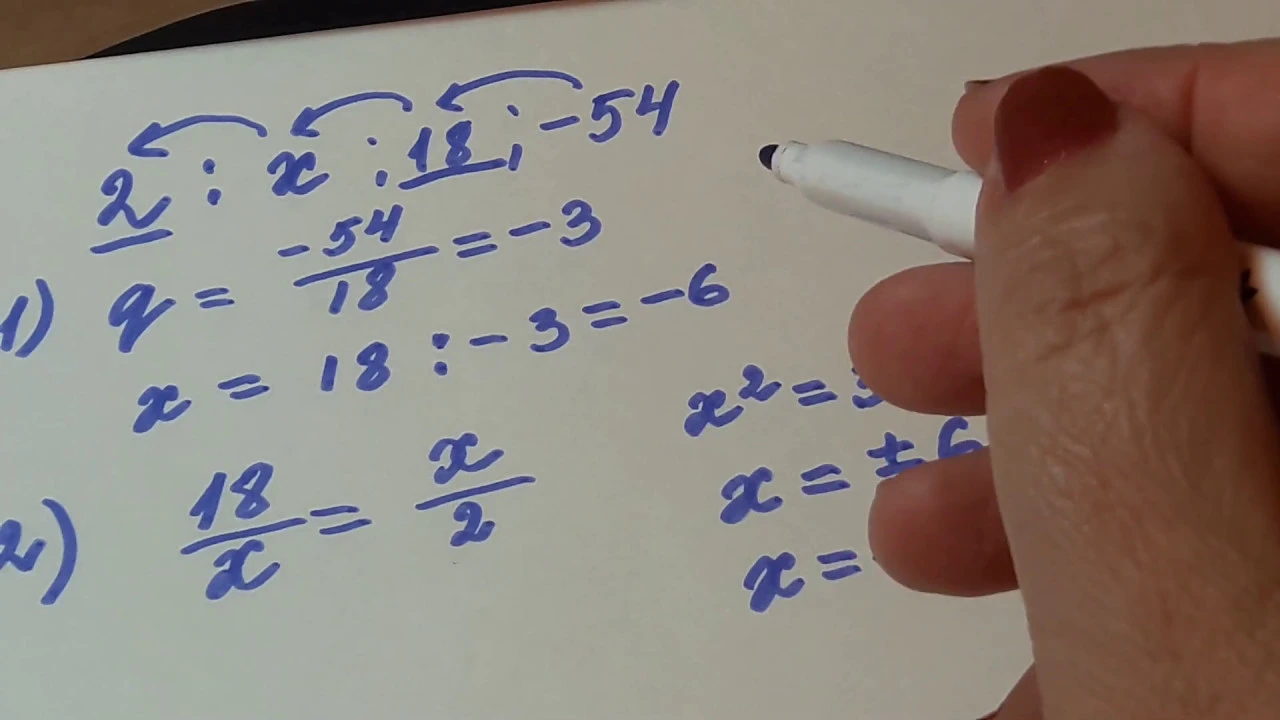 2 ; x ; 18 ; -54
1) q = -54/18 = -3
x = 18 : -3 = -6
2) 18/x = x/2
x² = 3
x = ± 6
x =